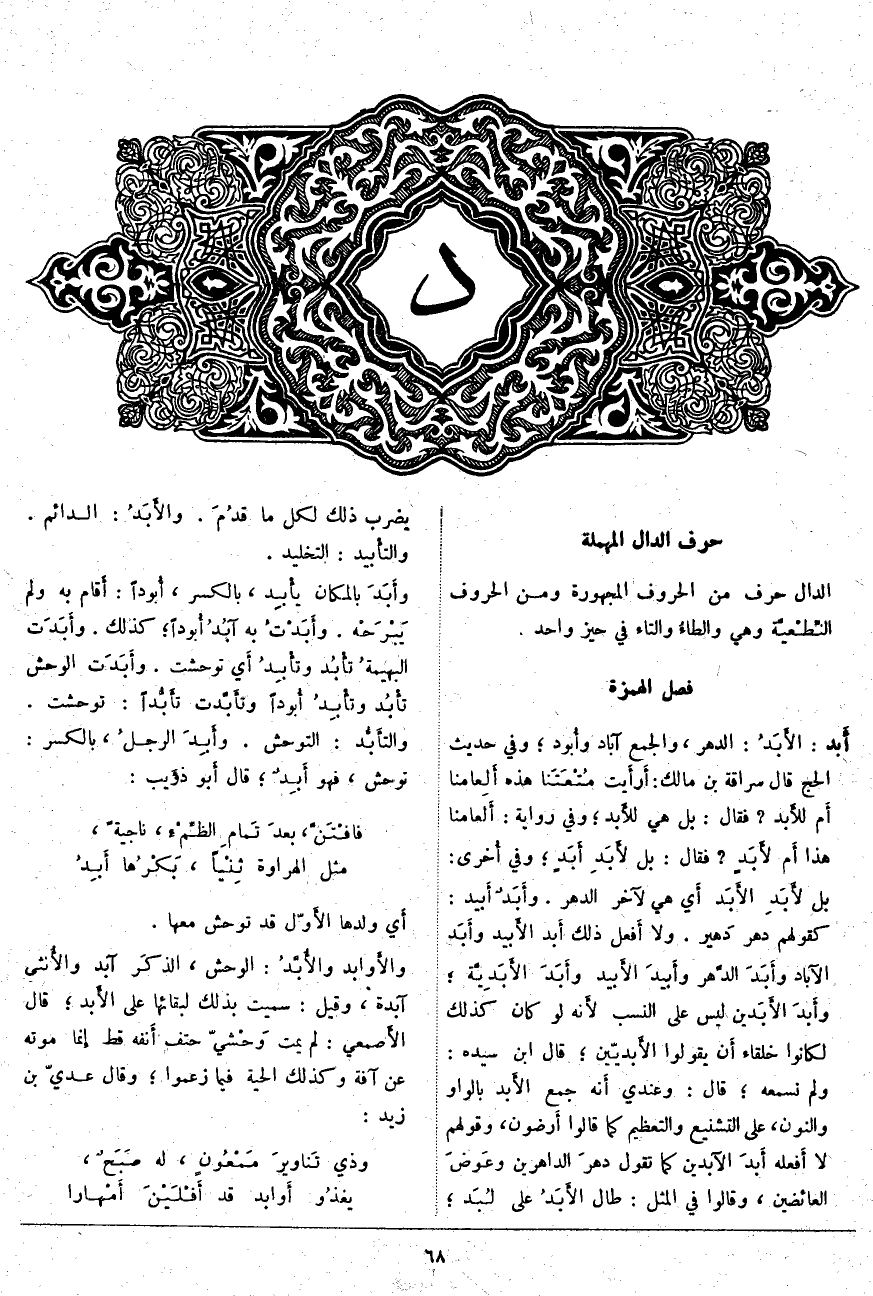 د
حرف الدال المهملة
الدال حرف من الحروف المجهورة ومن الحروف
النِّطْعيَّة وهي والطاءُ والتاء في حيز واحد .
فصل الهمزة
أبد : الأَبَدُ : الدهر ، والجمع آباد وأُبود ؛ وفي حديث
الحج قال سراقة بن مالك: أرأيت مُتْعَتَنا هذه أَلِعامنا
أم للأبد ؟ فقال : بل هي للأبد ؛ وفي رواية : أَلعامنا
هذا أم لأَبَدٍ ؟ فقال : بل لأَبَدِ أَبَدٍ ؛ وفي أخرى:
بل لأَبَدِ الأَبَد أي هي لآخر الدهر . وأَبَدٌ أَبيد :
كقولهم دهر دَهير . ولا أفعل ذلك أبد الأَبيد وأَبَد
الآباد وأَبَدَ الدَّهر وأَبيدَ الأَبيد وأَبَدَ الأَبَدِيَّة ؛
وأَبدَ الأَبَدين ليس على النسب لأنه لو كان كذلك
لكانوا خلقاء أن يقولوا الأَبديّين ؛ قال ابن سيده :
ولم نسمعه ؛ قال : وعندي أنه جمع الأَبد بالواو
والنون، على التشنيع والتعظيم كما قالوا أرضون، وقولهم
لا أفعله أبدَ الآبدين كما تقول دهرَ الداهرين وعَوضَ
العائضين ، وقالوا في المثل : طال الأَبَدُ على لُبَد ؛
يضرب ذلك لكل ما قدُمَ . والأَبَدُ : الدائم .
والتأبيد : التخليد .
وأَبَدَ بالمكان يأبِد ، بالكسر ، أُبوداً : أقام به ولم
يَبْرَحْه . وأَبَدْتُ به آبُدُ أُبوداً؛ كذلك . وأَبَدَت
البهيمةُ تأبُد وتأبِدُ أي توحشت . وأَبَدَت الوحش
تأبُد وتأبِدُ أُبوداً وتأبَّدت تأبُّداً : توحشت .
والتأَبُّد : التوحش . وأَبِدَ الرجلُ ، بالكسر :
توحش ، فهو أَبِدٌ ؛ قال أبو ذؤيب :
فافْتَنَّ، بعدَ تَمامِ الظِّمْءِ ، ناجيةً ،
مثل الهراوة ثِنْياً ، بَكْرُها أَبِدُ
أي ولدها الأوّل قد توحش معها .
والأوابد والأُبَّدُ : الوحش ، الذكَر آبد والأنثى
آبدة ، وقيل : سميت بذلك لبقائها على الأبد ؛ قال
الأصمعي : لم يمت وَحْشيّ حتف أنفه قط إنما موته
عن آفة وكذلك الحية فيما زعموا ؛ وقال عديّ بن
زيد :
وذي تَناويرَ مَمْعُونٍ ، له صَبَحٌ ،
يغذُو أوابد قد أَفْلَيْنَ أَمْهارا
٦٨